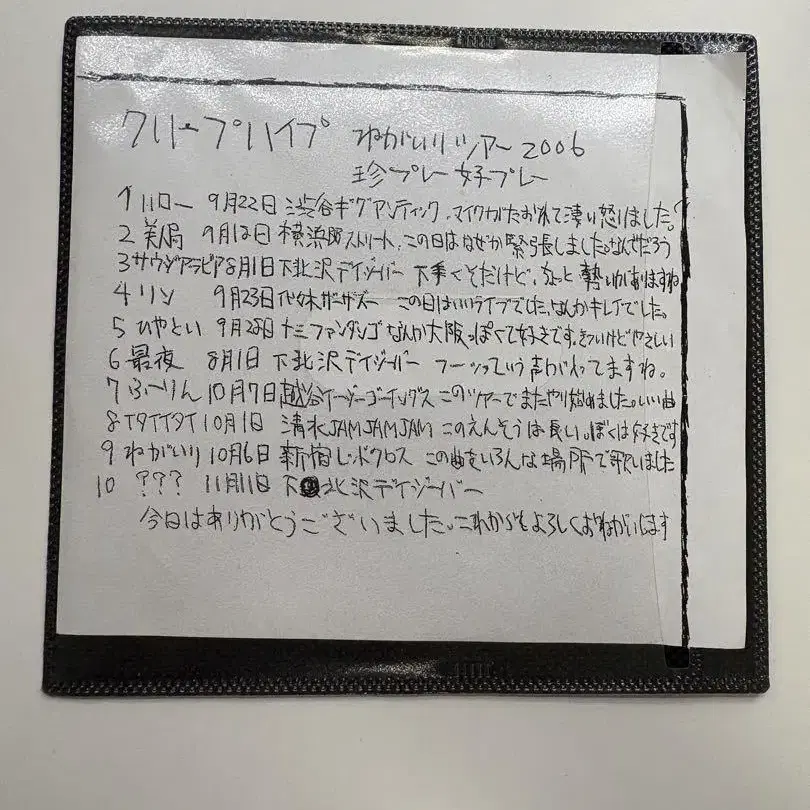 クリープハイプ ねがいりツアー2006
珍プレー好プレー
1 ハロー 9月22日 渋谷ギグアンティック、マイクがたおれて凄い怒りました。
2 美人局 9月18日 横浜 ストリート、この日はなぜか緊張しました。なんでだろう
3 サウジアラビア 8月1日 下北沢デイジーバー 下手くそだけど、ちょっと勢いがありますね
4 リン 9月23日 この日はいいライブでした。なんかキレイでした。
5 ひやとい 9月28日 十三ファンダンゴ なんか大阪っぽくて好きです。きついけどやさしい
6 最夜 8月1日 下北沢デイジーバー フーッっていう声が入ってますね。
7 ふ〜りん 10月7日 越谷イージーゴーイングス このツアーでまたやり始めました。いい曲
8 イタイイタイ 10月1日 清水JAMJAMJAM このえんそうは長い。ぼくは好きです
9 ねがいり 10月6日 新宿レッドクロス この曲をいろんな場所で歌いました
10 ??? 11月11日 下北沢デイジーバー
今日はありがとうございました。これからもよろしくおねがいします